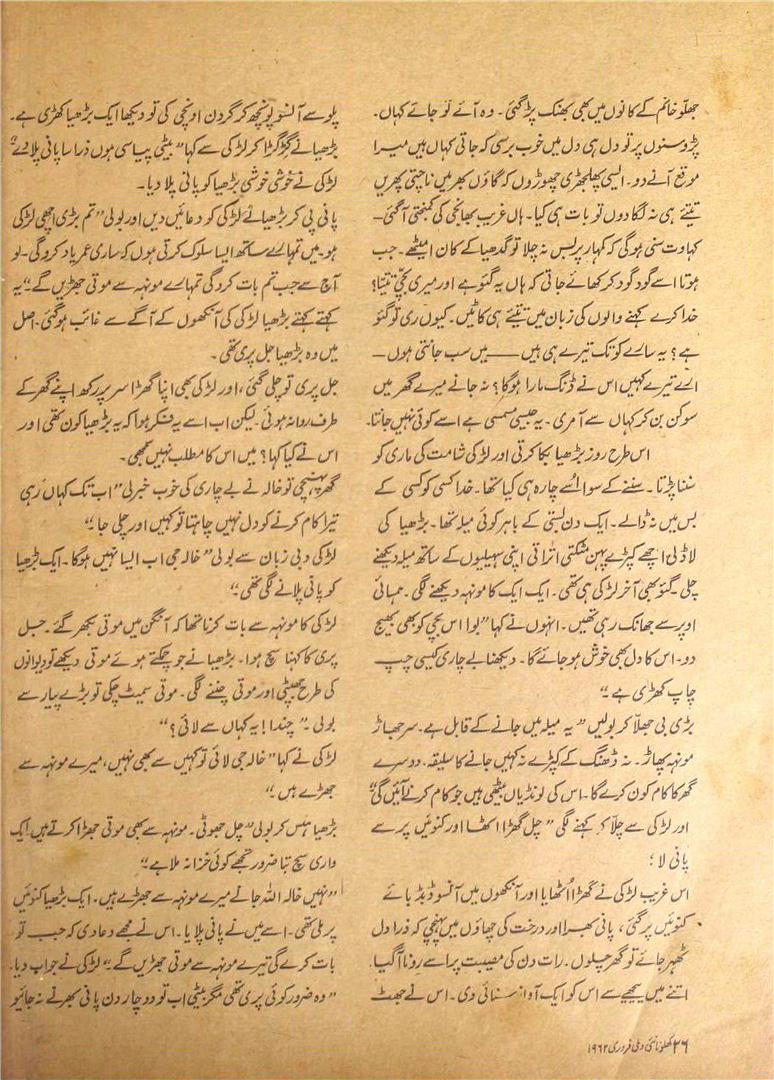 جھلّو خانم کے کانوں میں بھی بھنک پڑ گئی۔ وہ آئے تو جائے کہاں۔
پڑوسنوں پر تو دل ہی دل میں خوب برسی کہ جاتی کہاں ہیں میرا
موقع آنے دو۔ ایسی پھلجھڑی چھوڑوں کہ گاؤں بھر میں ناچتی پھریں
تیتئے ہی نہ لگا دوں تو بات ہی کیا۔ ہاں غریب بھانجی کی کمبختی آ گئی—
کہاوت سنی ہوگی کہ کمہار پر بس نہ چلا تو گدھیا کے کان امیٹھے۔ جب
ہوتا اسے گود گود کر کھائے جاتی کہ ہاں یہ گئو ہے اور میری بچی تیتا؟
خدا کرے کہنے والوں کی زبان میں تیتئے ہی کاٹیں۔ کیوں ری تو گئو
ہے؟ یہ سارے کوتک تیرے ہی ہیں —— میں سب جانتی ہوں —
اے تیرے کہیں اس نے ڈنگ مارا ہوگا؟ نہ جانے میرے گھر میں
سوکن بن کر کہاں سے آ مری۔ یہ جیسی مسمسی ہے اسے کوئی نہیں جانتا۔
اس طرح روز بڑھیا بکا کرتی اور لڑکی شامت کی ماری کو
سننا پڑتا۔ سننے کے سوا اُسے چارہ ہی کیا تھا۔ خدا کسی کو کسی کے
بس میں نہ ڈالے۔ ایک دن بستی کے باہر کوئی میلہ تھا۔ بڑھیا کی
لاڈلی اچھے کپڑے پہن مٹکتی اتراتی اپنی سہیلیوں کے ساتھ میلہ دیکھنے
چلی۔ گئو بھی آخر لڑکی ہی تھی۔ ایک ایک کا مونہہ دیکھنے لگی۔ ہمسائی
اوپر سے جھانک رہی تھیں۔ انہوں نے کہا ”بوا اس بچی کو بھی بھیج
دو۔ اس کا دل بھی خوش ہو جائے گا۔ دیکھنا بے چاری کیسی چپ
چاپ کھڑی ہے۔“
بڑی بی جھلّا کر بولیں ”یہ میلہ میں جانے کے قابل ہے۔ سر جھاڑ
مونہہ پھاڑ۔ نہ ڈھنگ کے کپڑے نہ کہیں جانے کا سلیقہ۔ دوسرے
گھر کا کام کون کرے گا۔ اس کی لونڈیاں بیٹھی ہیں جو کام کرنے آئیں گی“
اور لڑکی سے چلّا کر کہنے لگی ”چل گھڑا اٹھا اور کنوئیں پر سے
پانی لا؛
اس غریب لڑکی نے گھڑا اُٹھایا اور آنکھوں میں آنسو ڈبڈبائے
کنوئیں پر گئی، پانی بھرا اور درخت کی چھاؤں میں پہنچی کہ ذرا دل
ٹھہر جائے تو گھر چلوں۔ رات دن کی مصیبت پر اسے رونا آ گیا۔
اتنے میں پیچھے سے اس کو ایک آواز سنائی دی۔ اس نے جھٹ
پلو سے آنسو پونچھ کر گردن اونچی کی تو دیکھا ایک بڑھیا کھڑی ہے۔
بڑھیا نے گڑگڑا کر لڑکی سے کہا ”بیٹی پیاسی ہوں ذرا سا پانی پلا دے“
لڑکی نے خوشی خوشی بڑھیا کو پانی پلا دیا۔
پانی پی کر بڑھیا نے لڑکی کو دعائیں دیں اور بولی ”تم بڑی اچھی لڑکی
ہو۔ میں تمہارے ساتھ ایسا سلوک کرتی ہوں کہ ساری عمر یاد کرو گی۔ لو
آج سے جب تم بات کرو گی تمہارے مونہہ سے موتی جھڑیں گے۔“ یہ
کہتے کہتے بڑھیا لڑکی کی آنکھوں کے آگے سے غائب ہو گئی۔ اصل
میں وہ بڑھیا جل پری تھی۔
جل پری تو چلی گئی، اور لڑکی بھی اپنا گھڑا سر پر رکھ اپنے گھر کے
طرف روانہ ہوئی۔ لیکن اب اسے یہ فکر ہوا کہ یہ بڑھیا کون تھی اور
اس نے کیا کہا؟ میں اس کا مطلب نہیں سمجھی۔
گھر پہنچی تو خالہ نے بے چاری کی خوب خبر لی ”اب تک کہاں رہی
تیرا کام کرنے کو دل نہیں چاہتا تو کہیں اور چلی جا۔“
لڑکی دبی زبان سے بولی ”خالہ جی اب ایسا نہیں ہوگا۔ ایک بڑھیا
کو پانی پلانے لگی تھی۔“
لڑکی کا مونہہ سے بات کرنا تھا کہ آنگن میں موتی بکھر گئے۔ جل
پری کا کہنا سچ ہوا۔ بڑھیا نے جو چمکتے ہوئے موتی دیکھے تو دیوانوں
کی طرح جھپٹی اور موتی چننے لگی۔ موتی سمیٹ چکی تو بڑے پیار سے
بولی۔ ”چندا! یہ کہاں سے لائی؟“
لڑکی نے کہا ”خالہ جی لائی تو کہیں سے بھی نہیں، میرے مونہہ سے
جھڑے ہیں۔“
بڑھیا ہنس کر بولی ”چل جھوٹی۔ مونہہ سے بھی موتی جھڑا کرتے ہیں۔ ایک
واری سچ بتا ضرور تجھے کوئی خزانہ ملا ہے۔“
”نہیں خالہ اللہ جانے میرے مونہہ سے جھڑے ہیں۔ ایک بڑھیا کنوئیں
پر ملی تھی۔ اسے میں نے پانی پلایا۔ اس نے مجھے دعا دی کہ جب تو
بات کرے گی تیرے مونہہ سے موتی جھڑیں گے۔“ لڑکی نے جواب دیا۔
”وہ ضرور کوئی پری تھی مگر بیٹی اب تو دو چار دن پانی بھرنے نہ جائیو
۲۶ کھلونا نئی دہلی فروری ۱۹۶۲